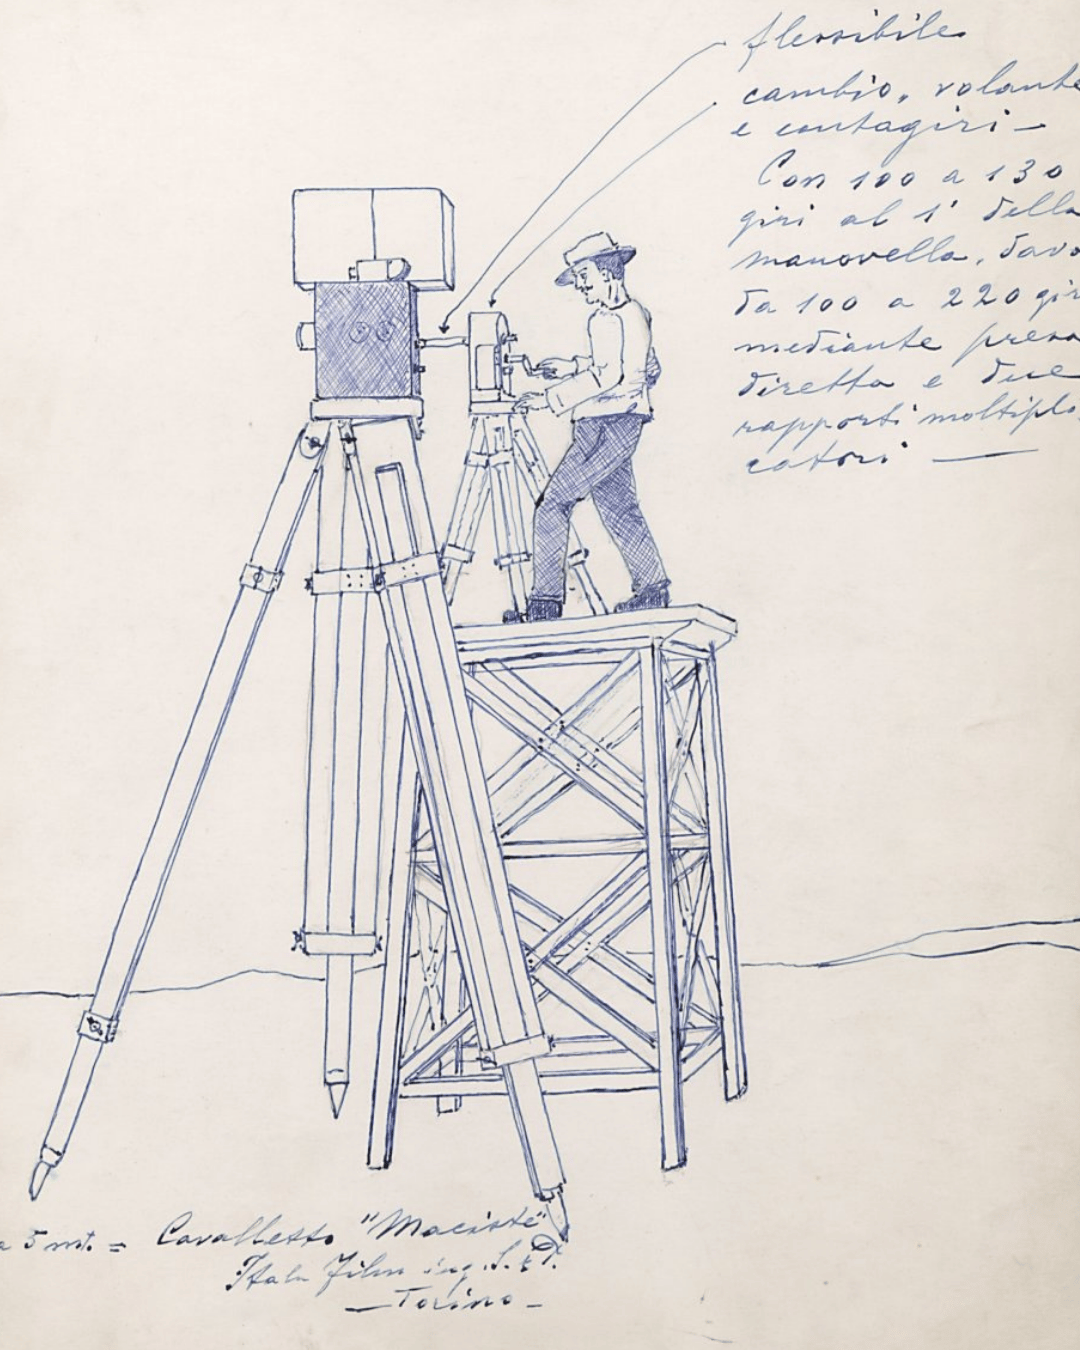 flessibile
cambio, volante
e contagiri –
Con 100 a 130
giri al 1' della
manovella, davo
da 100 a 220 gir
mediante presa
diretta e due
rapporti moltipli
catori —
a 5 mt. = Cavalletto "Maciste"
Itala Film ing. S. & P.
— Torino –